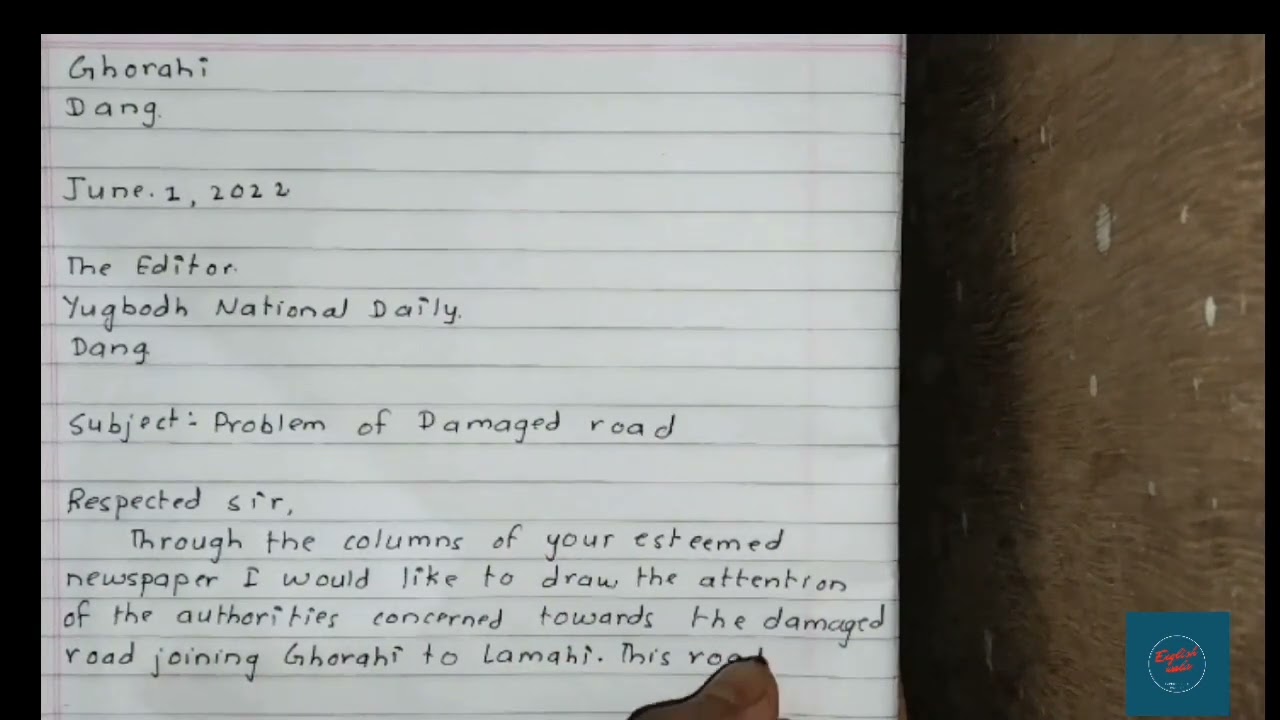 Ghorahi
Dang.
June. 1, 2022
The Editor.
Yugbodh National Daily.
Dang
Subject:- Problem of Damaged road
Respected sir,
Through the columns of your esteemed
newspaper I would like to draw the attention
of the authorities concerned towards the damaged
road joining Ghorahi to Lamahi. This road
English